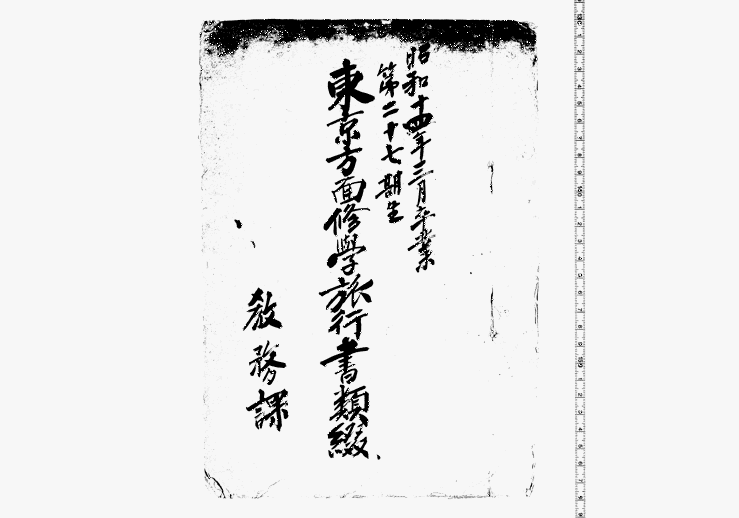 昭和十四年三月卒業
第二十七期生
東京方面修學旅行書類綴
教務課